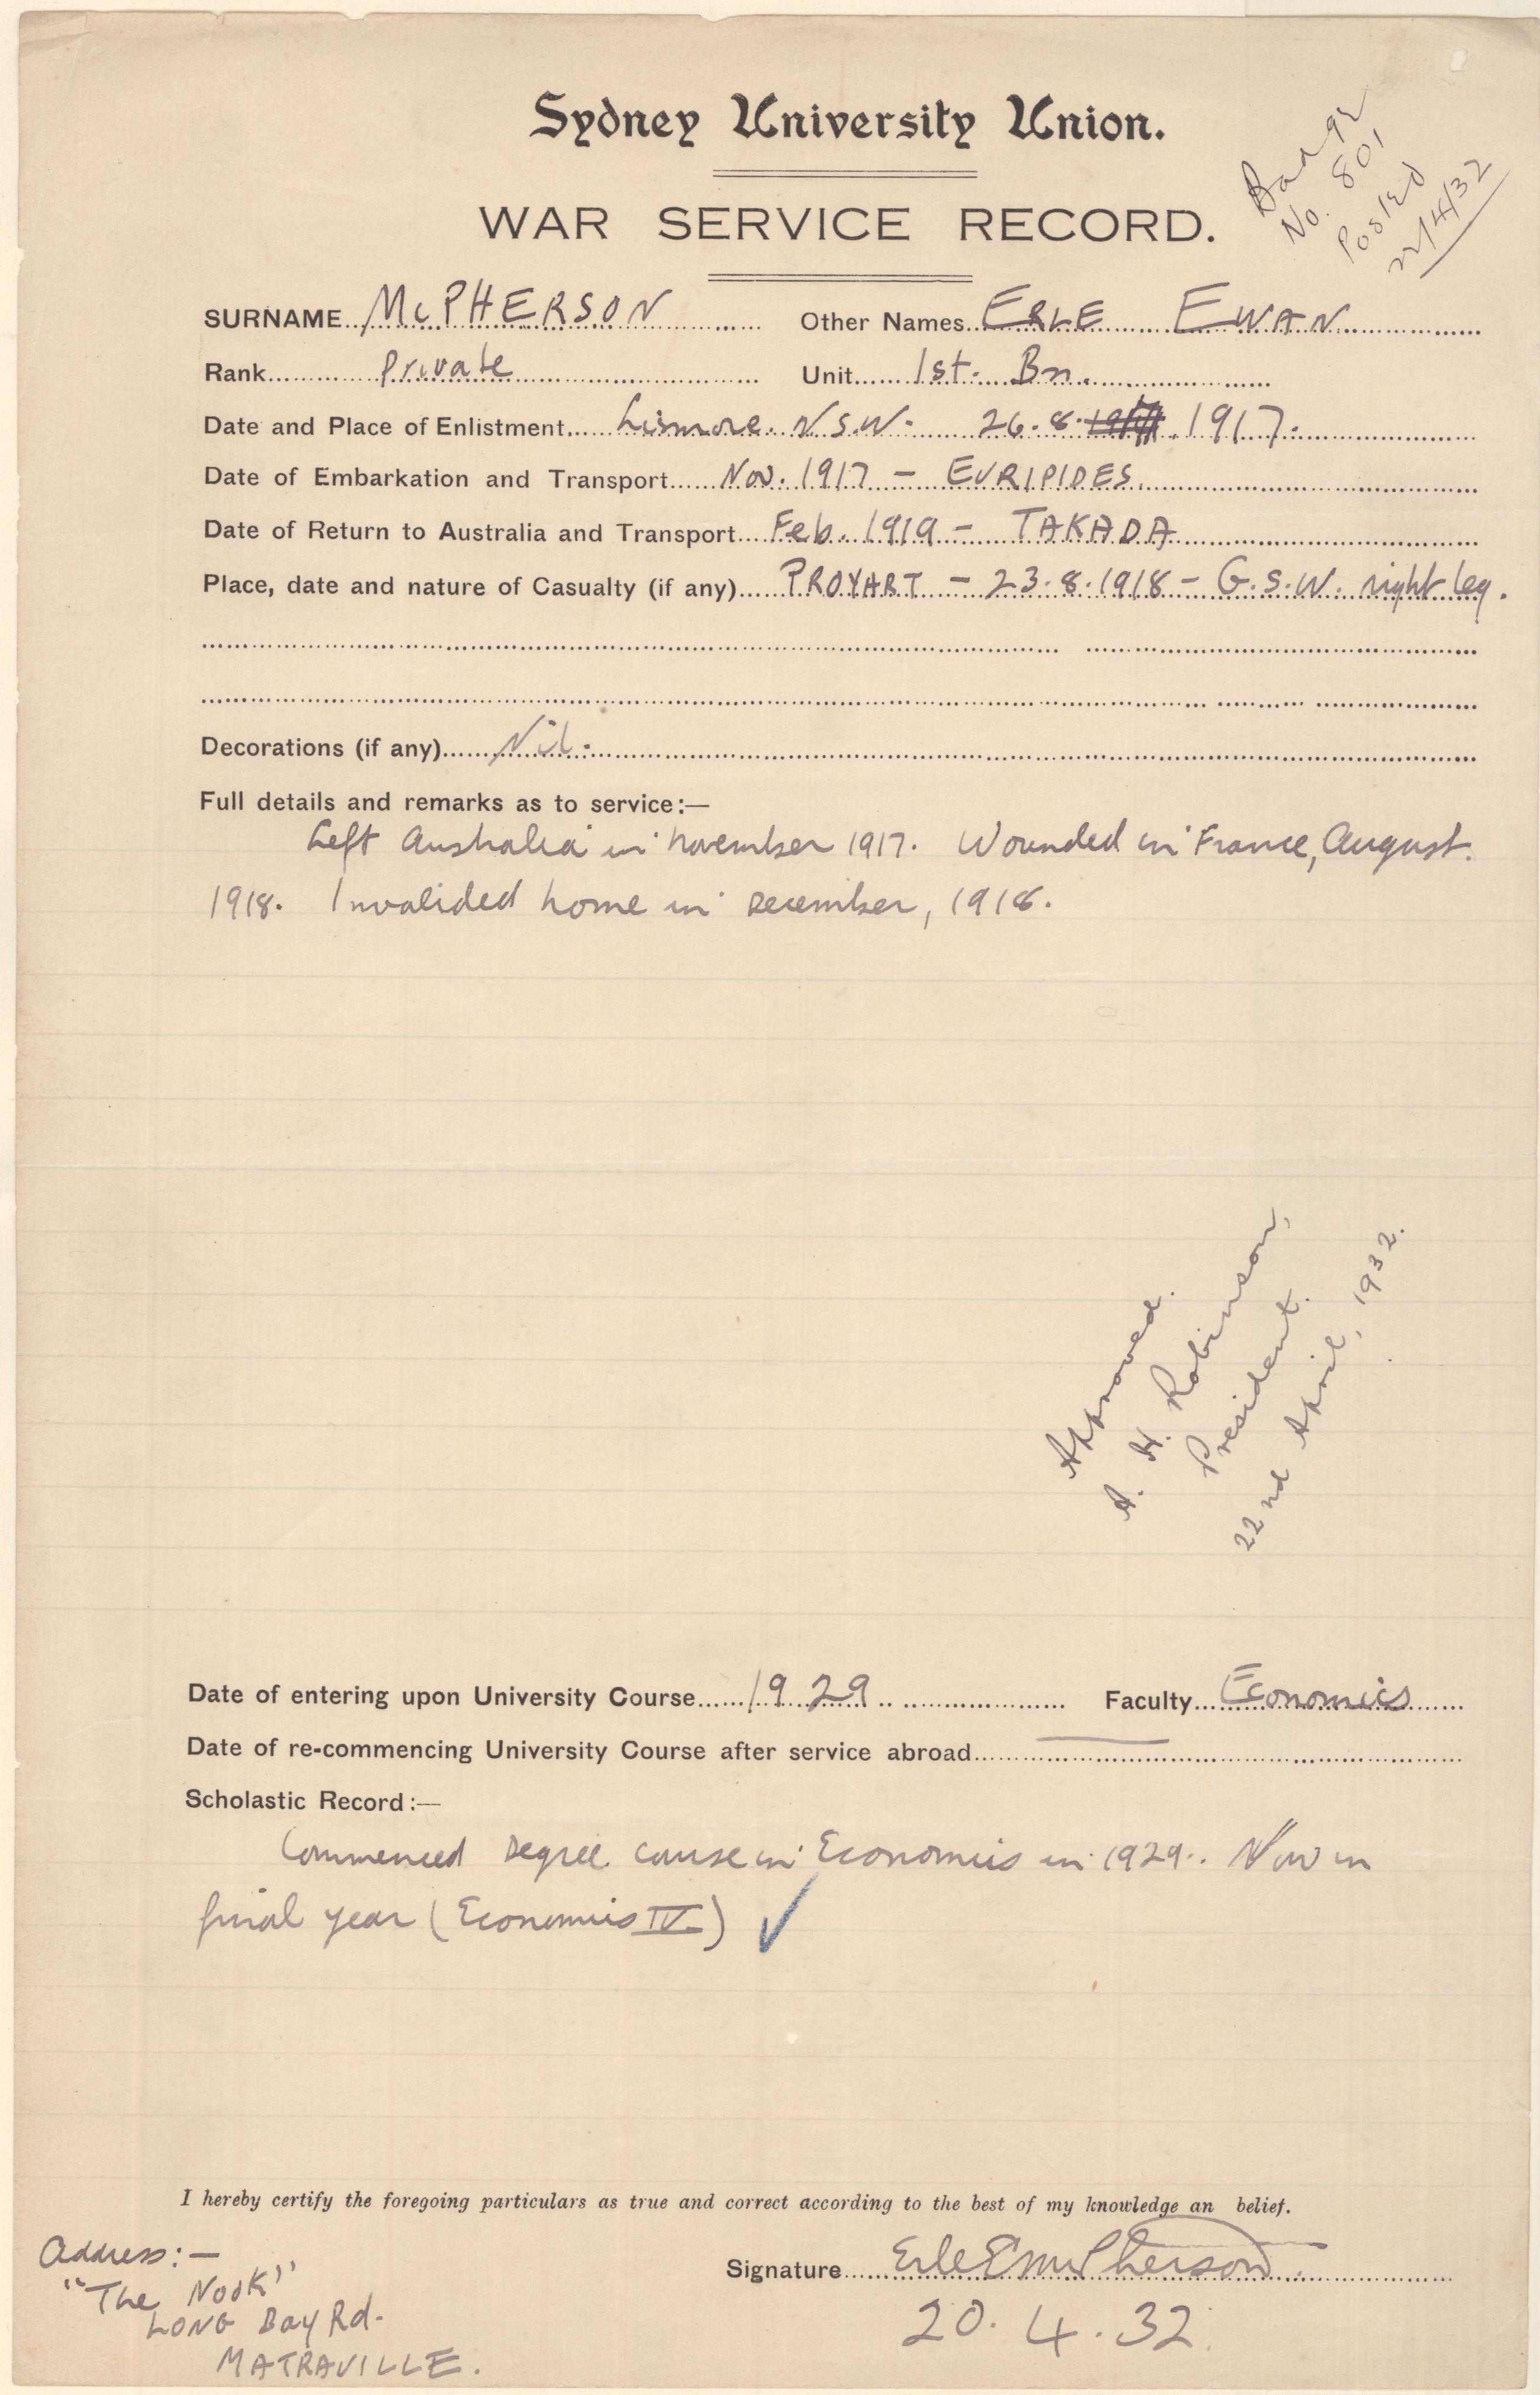 Sydney University Union.
WAR SERVICE RECORD.
Badge
No. 801
Posted
22/4/32
SURNAME McPHERSON Other Names ERLE EWAN
Rank Private Unit 1st. Bn.
Date and Place of Enlistment Lismore. N.S.W. 26.8. 1917.
Date of Embarkation and Transport Nov. 1917 - EURIPIDES.
Date of Return to Australia and Transport Feb. 1919 - TAKADA
Place, date and nature of Casualty (if any) PROYART - 23.8.1918 - G.S.W. right leg.
Decorations (if any) Nil.
Full details and remarks as to service:—
Left Australia in November 1917. Wounded in France, August.
1918. Invalided home in December, 1918.
Approved.
A. H. Robinson,
President.
22nd April, 1932.
Date of entering upon University Course 1929 Faculty Economics
Date of re-commencing University Course after service abroad —
Scholastic Record:—
Commenced Degree course in Economics in 1929. Now in
final year (Economics IV.) ✓
I hereby certify the foregoing particulars as true and correct according to the best of my knowledge an belief.
Address:—
"The Nook"
LONG Bay Rd.
MATRAVILLE.
Signature Erle E McPherson
20.4.32.